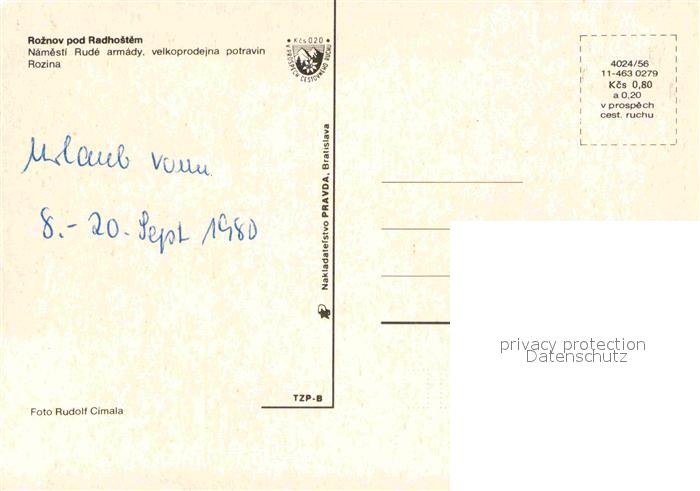 Rožnov pod Radhoštěm
Náměstí Rudé armády, velkoprodejna potravin
Rozina
Kčs 0,20
V PROSPĚCH CESTOVNÍHO RUCHU
Urlaub vom
8.-20. Sept 1980
Nakladateľstvo PRAVDA, Bratislava
TZP-B
Foto Rudolf Cimala
4024/56
11-463 0279
Kčs 0,80
a 0,20
v prospěch
cest. ruchu
privacy protection
Datenschutz